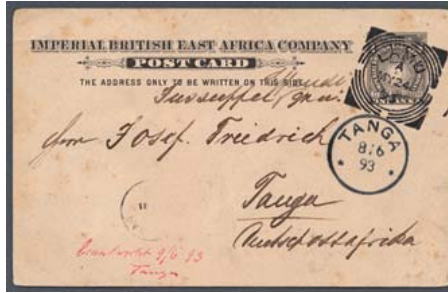 IMPERIAL BRITISH EAST AFRICA COMPANY
POST CARD
THE ADDRESS ONLY TO BE WRITTEN ON THIS SIDE
LAMU
A
MY 24
TANGA
8/6
93
Herrn Josef Friedrich
Tanga
Deutschostafrika
beantwortet 9/6 93
Tanga